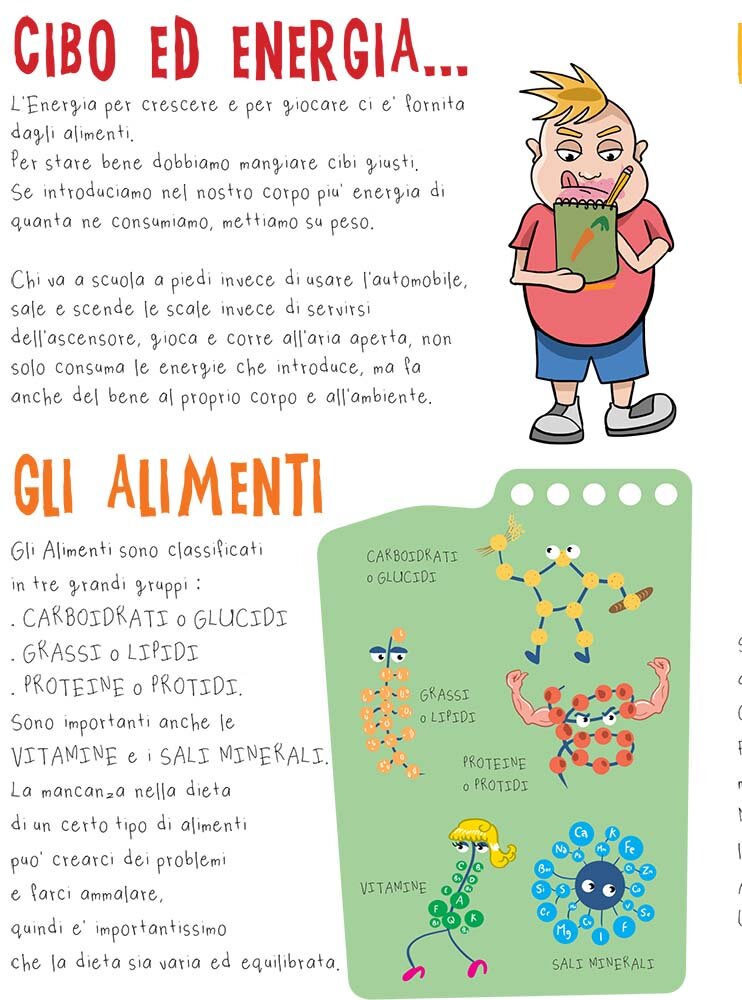 CIBO ED ENERGIA...
L'Energia per crescere e per giocare ci e' fornita
dagli alimenti.
Per stare bene dobbiamo mangiare cibi giusti.
Se introduciamo nel nostro corpo piu' energia di
quanta ne consumiamo, mettiamo su peso.
Chi va a scuola a piedi invece di usare l'automobile,
sale e scende le scale invece di servirsi
dell'ascensore, gioca e corre all'aria aperta, non
solo consuma le energie che introduce, ma fa
anche del bene al proprio corpo e all'ambiente.
GLI ALIMENTI
Gli Alimenti sono classificati
in tre grandi gruppi :
. CARBOIDRATI o GLUCIDI
. GRASSI o LIPIDI
. PROTEINE o PROTIDI.
Sono importanti anche le
VITAMINE e i SALI MINERALI.
La mancanza nella dieta
di un certo tipo di alimenti
puo' crearci dei problemi
e farci ammalare,
quindi e' importantissimo
che la dieta sia varia ed equilibrata.
CARBOIDRATI
o GLUCIDI
GRASSI
o LIPIDI
PROTEINE
o PROTIDI
VITAMINE
F
A
Q
K
SALI MINERALI
Ca
K
Na
Mn
Fe
Zn
Si
S
Co
Cr
Se
Mg
Cu
V
I
F